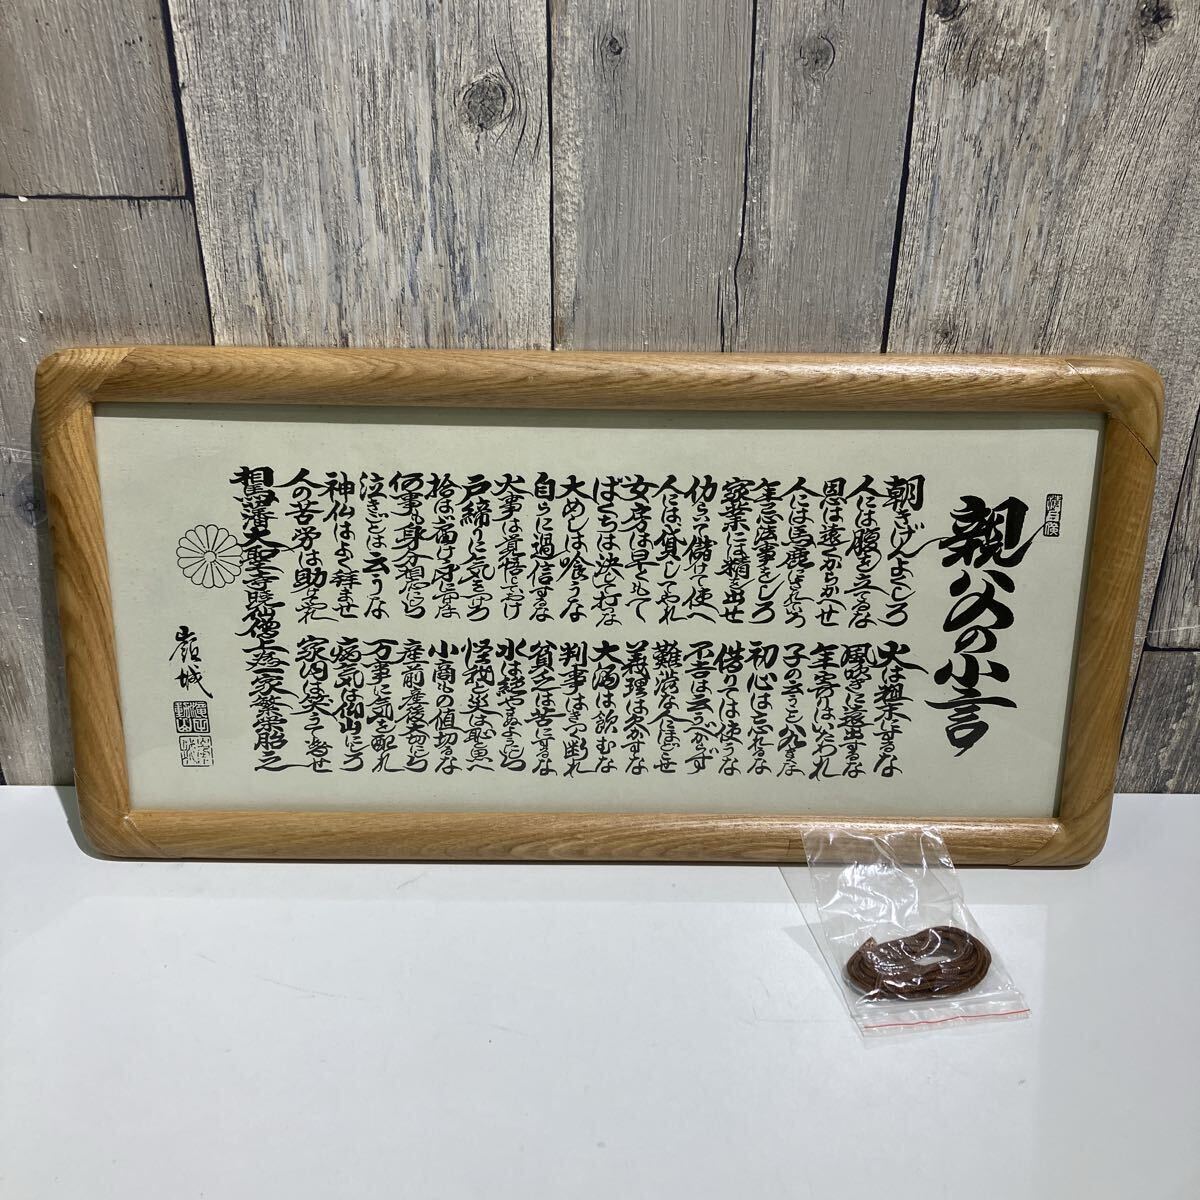 親父の小言
朝きげんよくしろ
火は粗末にするな
人には腹を立てるな
風吹きに遠出するな
恩は遠くからかへせ
年寄りはいたわれ
人には馬鹿にされていろ
子の云うこと八九きくな
年忌法事をしろ
初心は忘れるな
家業には精を出せ
借りては使うな
働いて儲けて使へ
不吉は云うべからず
人には貸してやれ
難渋な人にほどこせ
女房は早くもて
義理は欠かすな
ばくちは決して打な
大酒は飲むな
大めしは喰うな
判事はきつく断れ
自らに過信するな
貧乏は苦にするな
火事は覚悟しておけ
水は絶やさぬようにしろ
戸締りに気をつけろ
怪我と災は恥と思へ
拾は届け身につけるな
小商もの値切るな
何事も身分相応にしろ
産前産後大切にしろ
泣きごとは云うな
万事に気を配れ
神仏はよく拝ませ
病気は仰山にしろ
人の苦労は助けてやれ
家内は笑ふて暮せ
相馬藩大聖寺暁仙僧上
嶺城